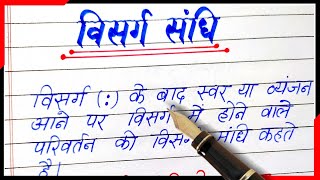 विसर्ग संधि
विसर्ग (:) के बाद स्वर या व्यंजन
आने पर विसर्ग में होने वाले
परिवर्तन को विसर्ग संधि कहते
है।